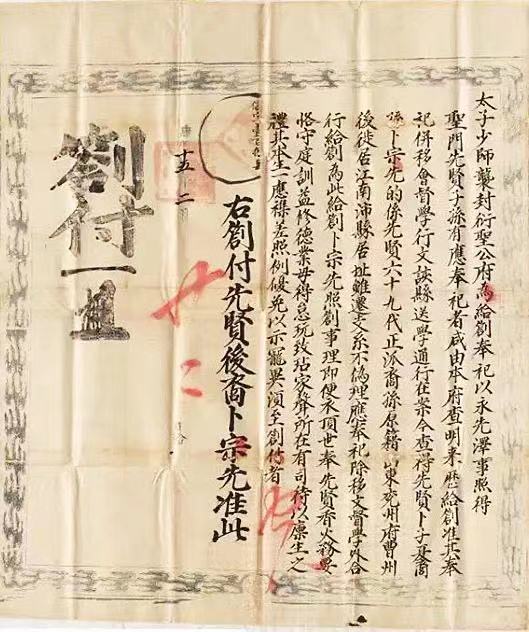 太子少師襲封衍聖公府為給劄奉祀以永先澤事照得
聖門先賢子孫有應奉祀者咸由本府查明来歷給劄准其奉
祀併移會督學行文該縣送學通行在案今查得先賢卜子夏裔
孫卜宗先的係先賢六十九代正派裔孫原籍山東兖州府曹州
後徙居江南沛縣居址雖遷支系不偽理應奉祀除移文督學外合
行給劄為此給劄卜宗先照劄事理即便承頂世奉先賢香火務要
恪守庭訓益修德業毋得怠玩致玷家聲所在有司待以廩生之
禮其本生一應襍差照例優免以示寵異須至劄付者
右劄付先賢後裔卜宗先准此
十五 二
廿二
劄付一